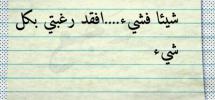 شيئا فشيء....افقد رغبتي بكل
شيء